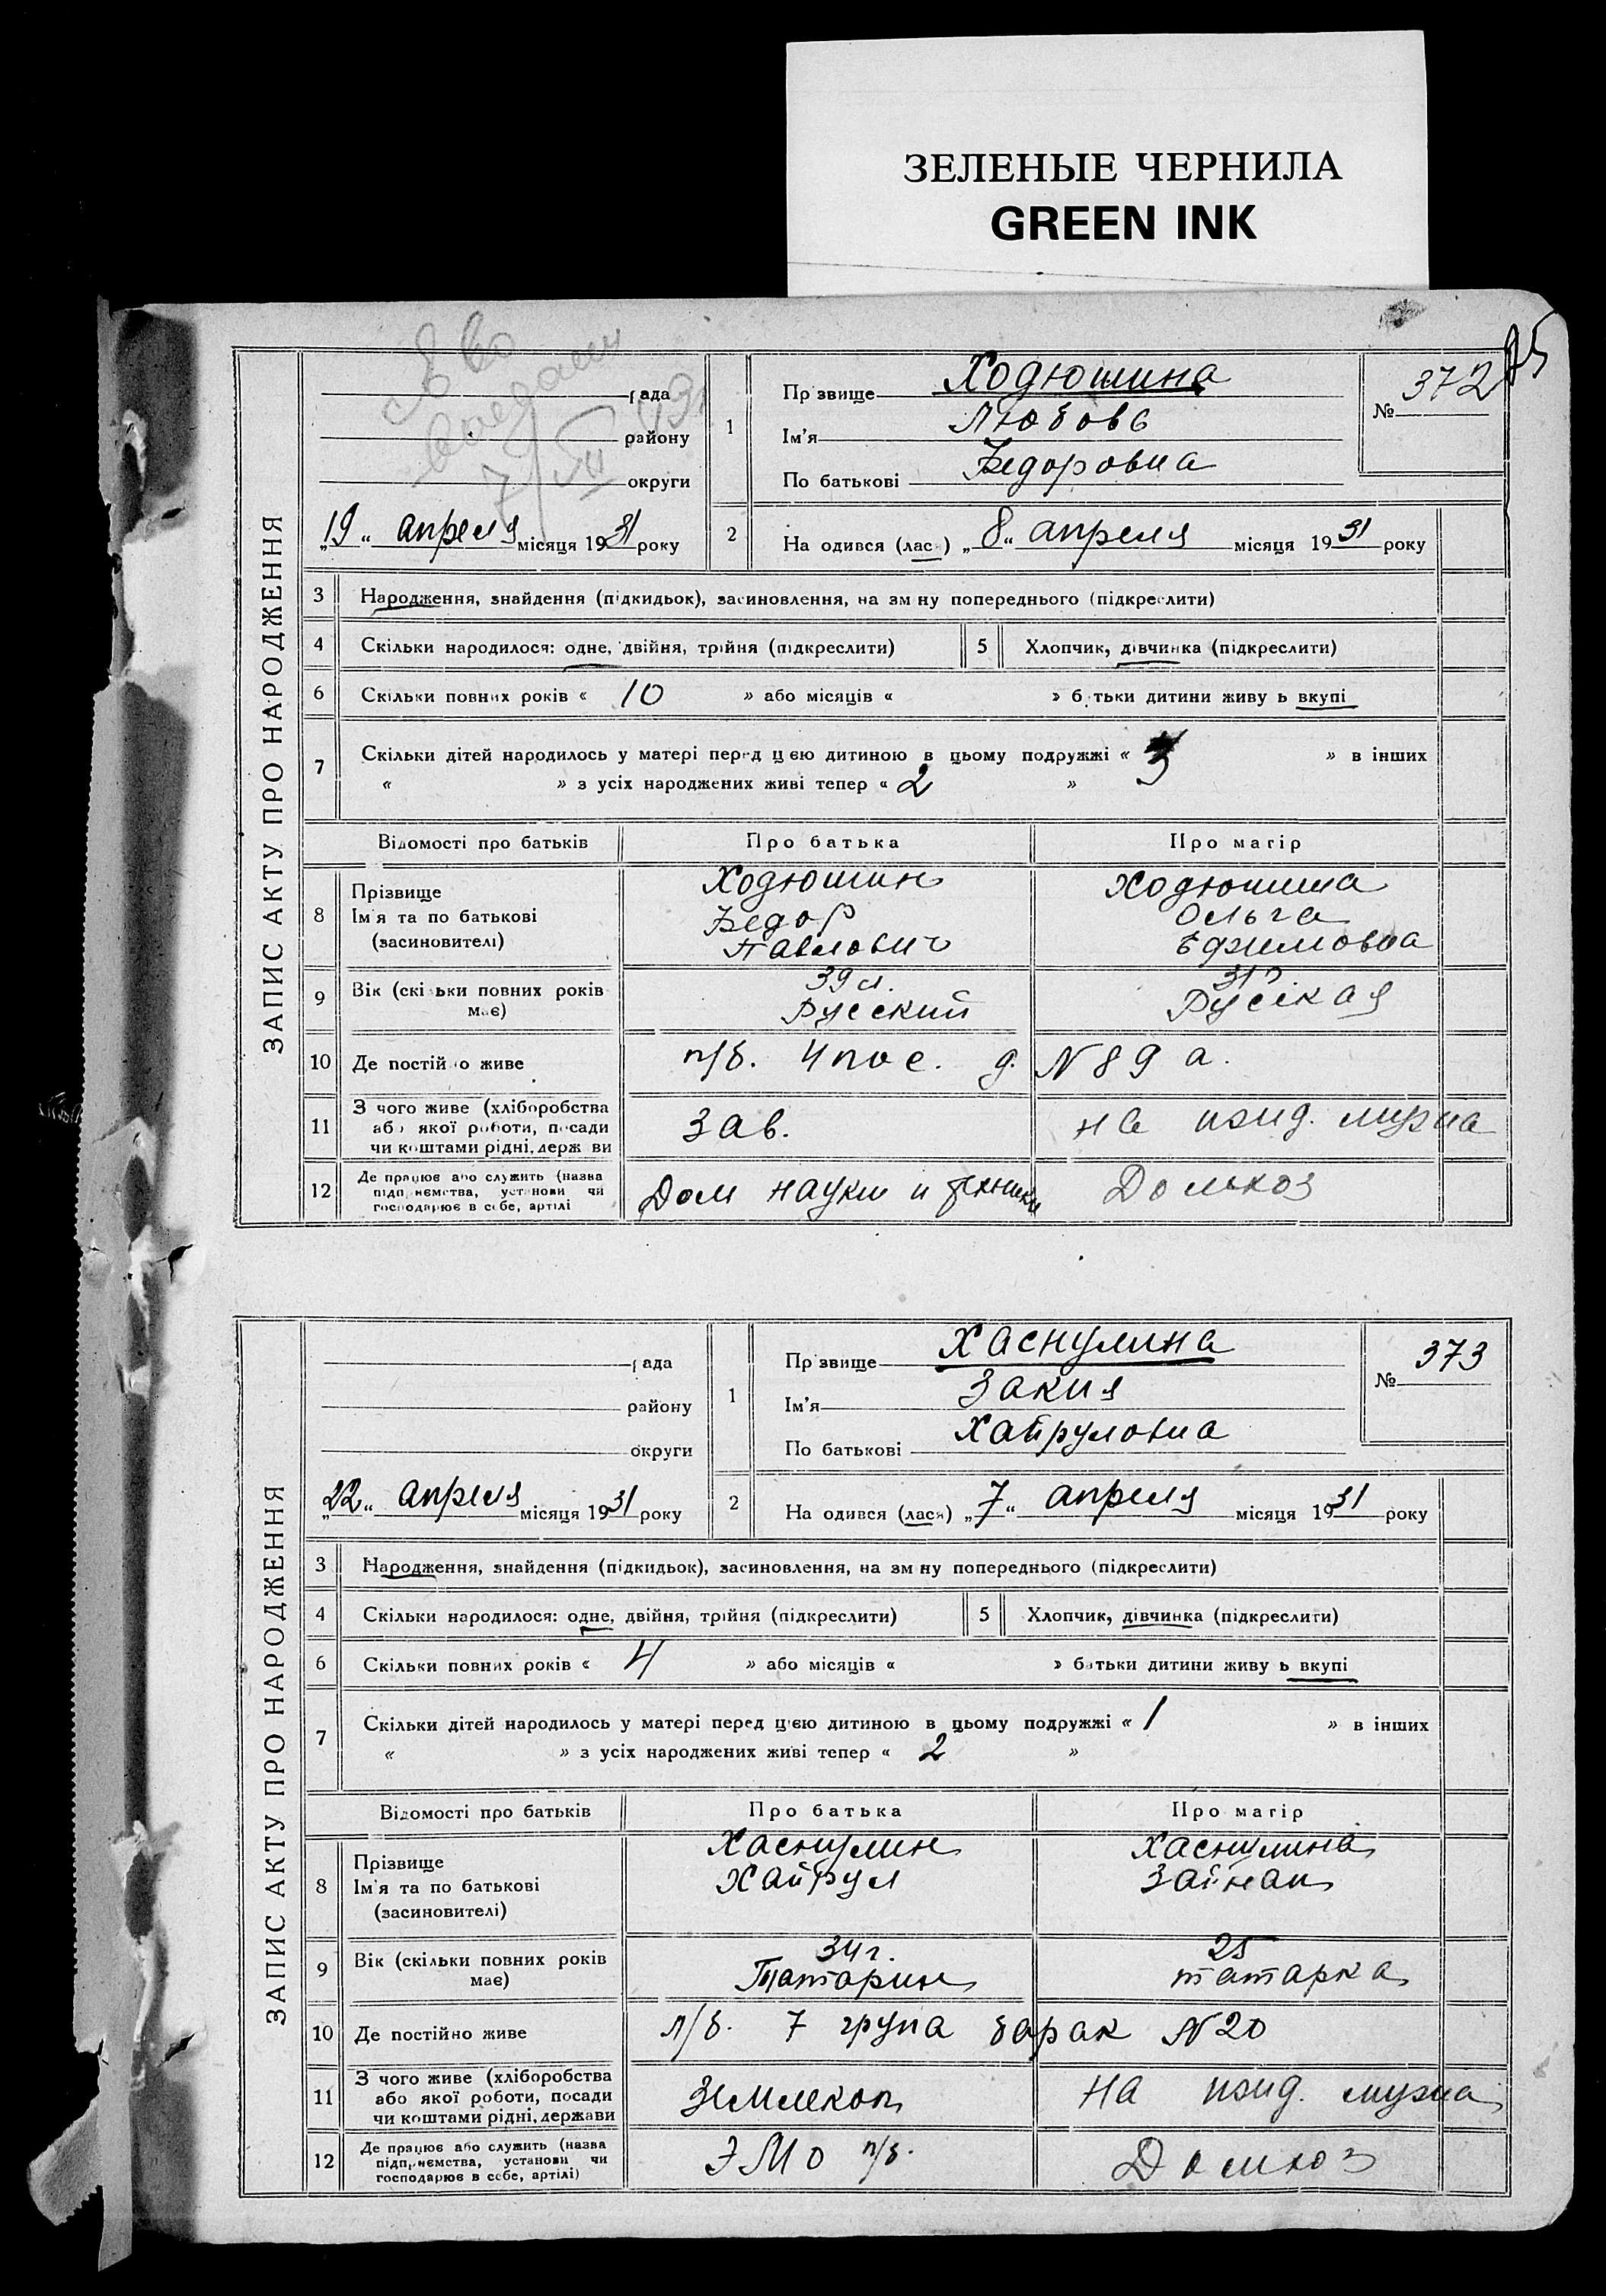 ЗЕЛЕНЫЕ ЧЕРНИЛА
GREEN INK
ЗАПИС АКТУ ПРО НАРОДЖЕННЯ
рада
району
округи
„19“ апреля місяця 1931 року
1
Пр звище Ходюшина
Ім’я Любовь
По батькові Федоровна
№ 372
2
На одився (лася) „8“ апреля місяця 1931 року
3 Народження, знайдення (підкидьок), засиновлення, на зм ну попереднього (підкреслити)
4 Скільки народилося: одне, двійня, трійня (підкреслити)
5 Хлопчик, дівчинка (підкреслити)
6 Скільки повних років « 10 » або місяців « » б тьки дитини живу ь вкупі
7 Скільки дітей народилось у матері перед цією дитиною в цьому подружжі « 3 » в інших
« » з усіх народжених живі тепер « 2 »
Відомості про батьків Про батька Про матір
8 Прізвище
Ім’я та по батькові
(засиновителі)
Ходюшин
Федор
Павлович
Ходюшина
Ольга
Ефимовна
9 Вік (скільки повних років
має)
39 л.
Русский
31
Русская
10 Де постійно живе п/б. 4 пос. д. N 89 а.
11 З чого живе (хліборобства
або якої роботи, посади
чи коштами рідні, держ ви
Зав.
на ижд. мужа
12 Де працює або служить (назва
підприємства, установи чи
господарює в себе, артілі
Дом науки и техники
Домхоз
ЗАПИС АКТУ ПРО НАРОДЖЕННЯ
рада
району
округи
„22“ апреля місяця 1931 року
1
Пр звище Хаснулина
Ім’я Закия
По батькові Хайруловна
№ 373
2
На одився (лася) „7“ апреля місяця 1931 року
3 Народження, знайдення (підкидьок), засиновлення, на зм ну попереднього (підкреслити)
4 Скільки народилося: одне, двійня, трійня (підкреслити)
5 Хлопчик, дівчинка (підкреслити)
6 Скільки повних років « 4 » або місяців « » батьки дитини живу ь вкупі
7 Скільки дітей народилось у матері перед цією дитиною в цьому подружжі « 1 » в інших
« » з усіх народжених живі тепер « 2 »
Відомості про батьків Про батька Про матір
8 Прізвище
Ім’я та по батькові
(засиновителі)
Хаснулин
Хайрул
Хаснулина
Зайнап
9 Вік (скільки повних років
має)
34 г.
Татарин
25
татарка
10 Де постійно живе п/б. 7 група барак N 20
11 З чого живе (хліборобства
або якої роботи, посади
чи коштами рідні, держави
Землекоп
на ижд. мужа
12 Де працює або служить (назва
підприємства, установи чи
господарює в себе, артілі)
ЭМО п/б.
Домхоз